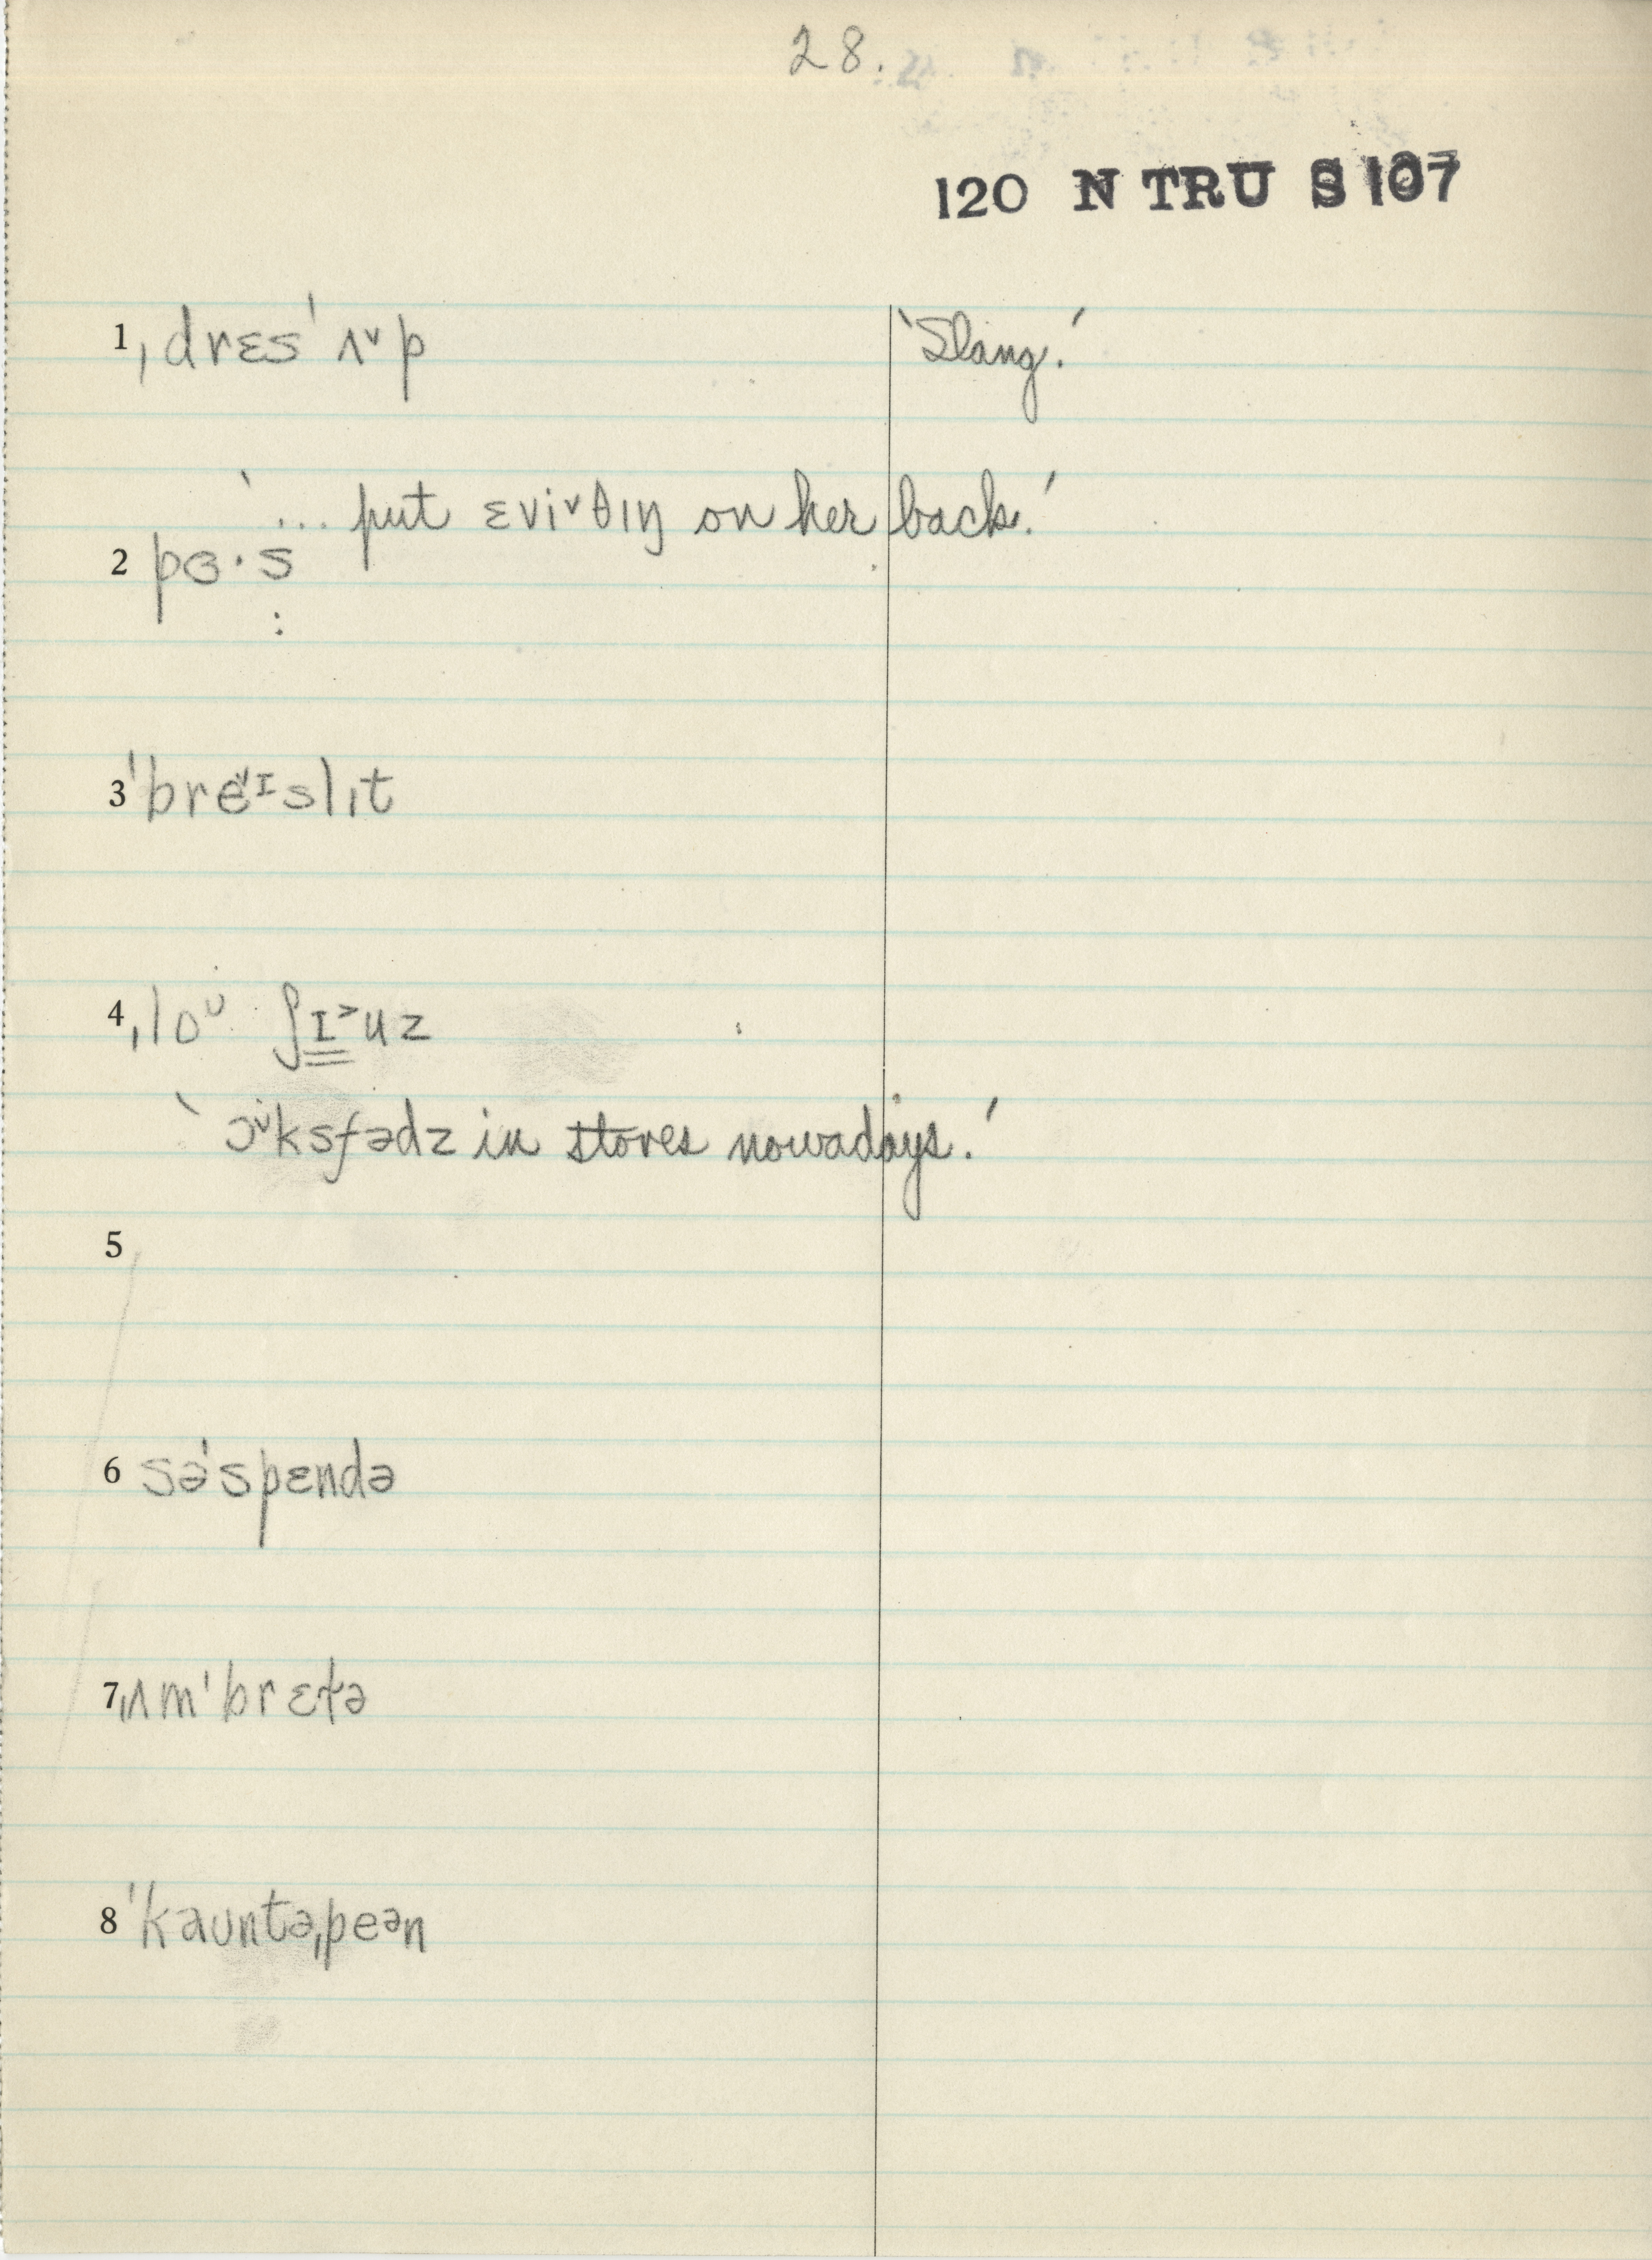 28.
120 N TRU S 107
1 ˌdrɛsˈʌ˅p ‘Slang.’
‘... put ɛvi˅θɪŋ on her back.’
2 pɜ·s
3 ˈbre˅ɪslɪt
4 ˌloᴜ ʃɪ˃uz
‘ɔ˅ksfədz in stores nowadays.’
5
6 səˈspɛndə
7 ˌʌmˈbrɛtə
8 ˈkaʊntəˌpeən